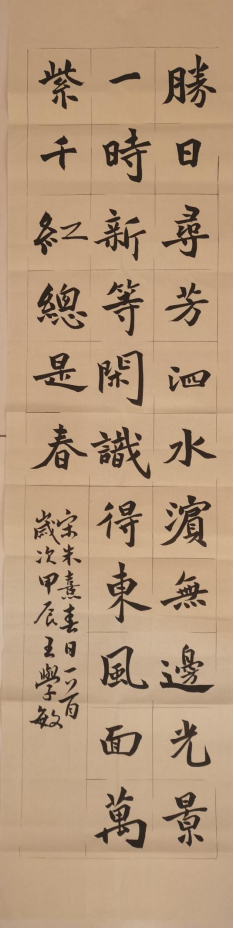 勝日尋芳泗水濱無邊光景
一時新等閑識得東風面萬
紫千紅總是春
宋朱熹春日一首
歲次甲辰王學敏